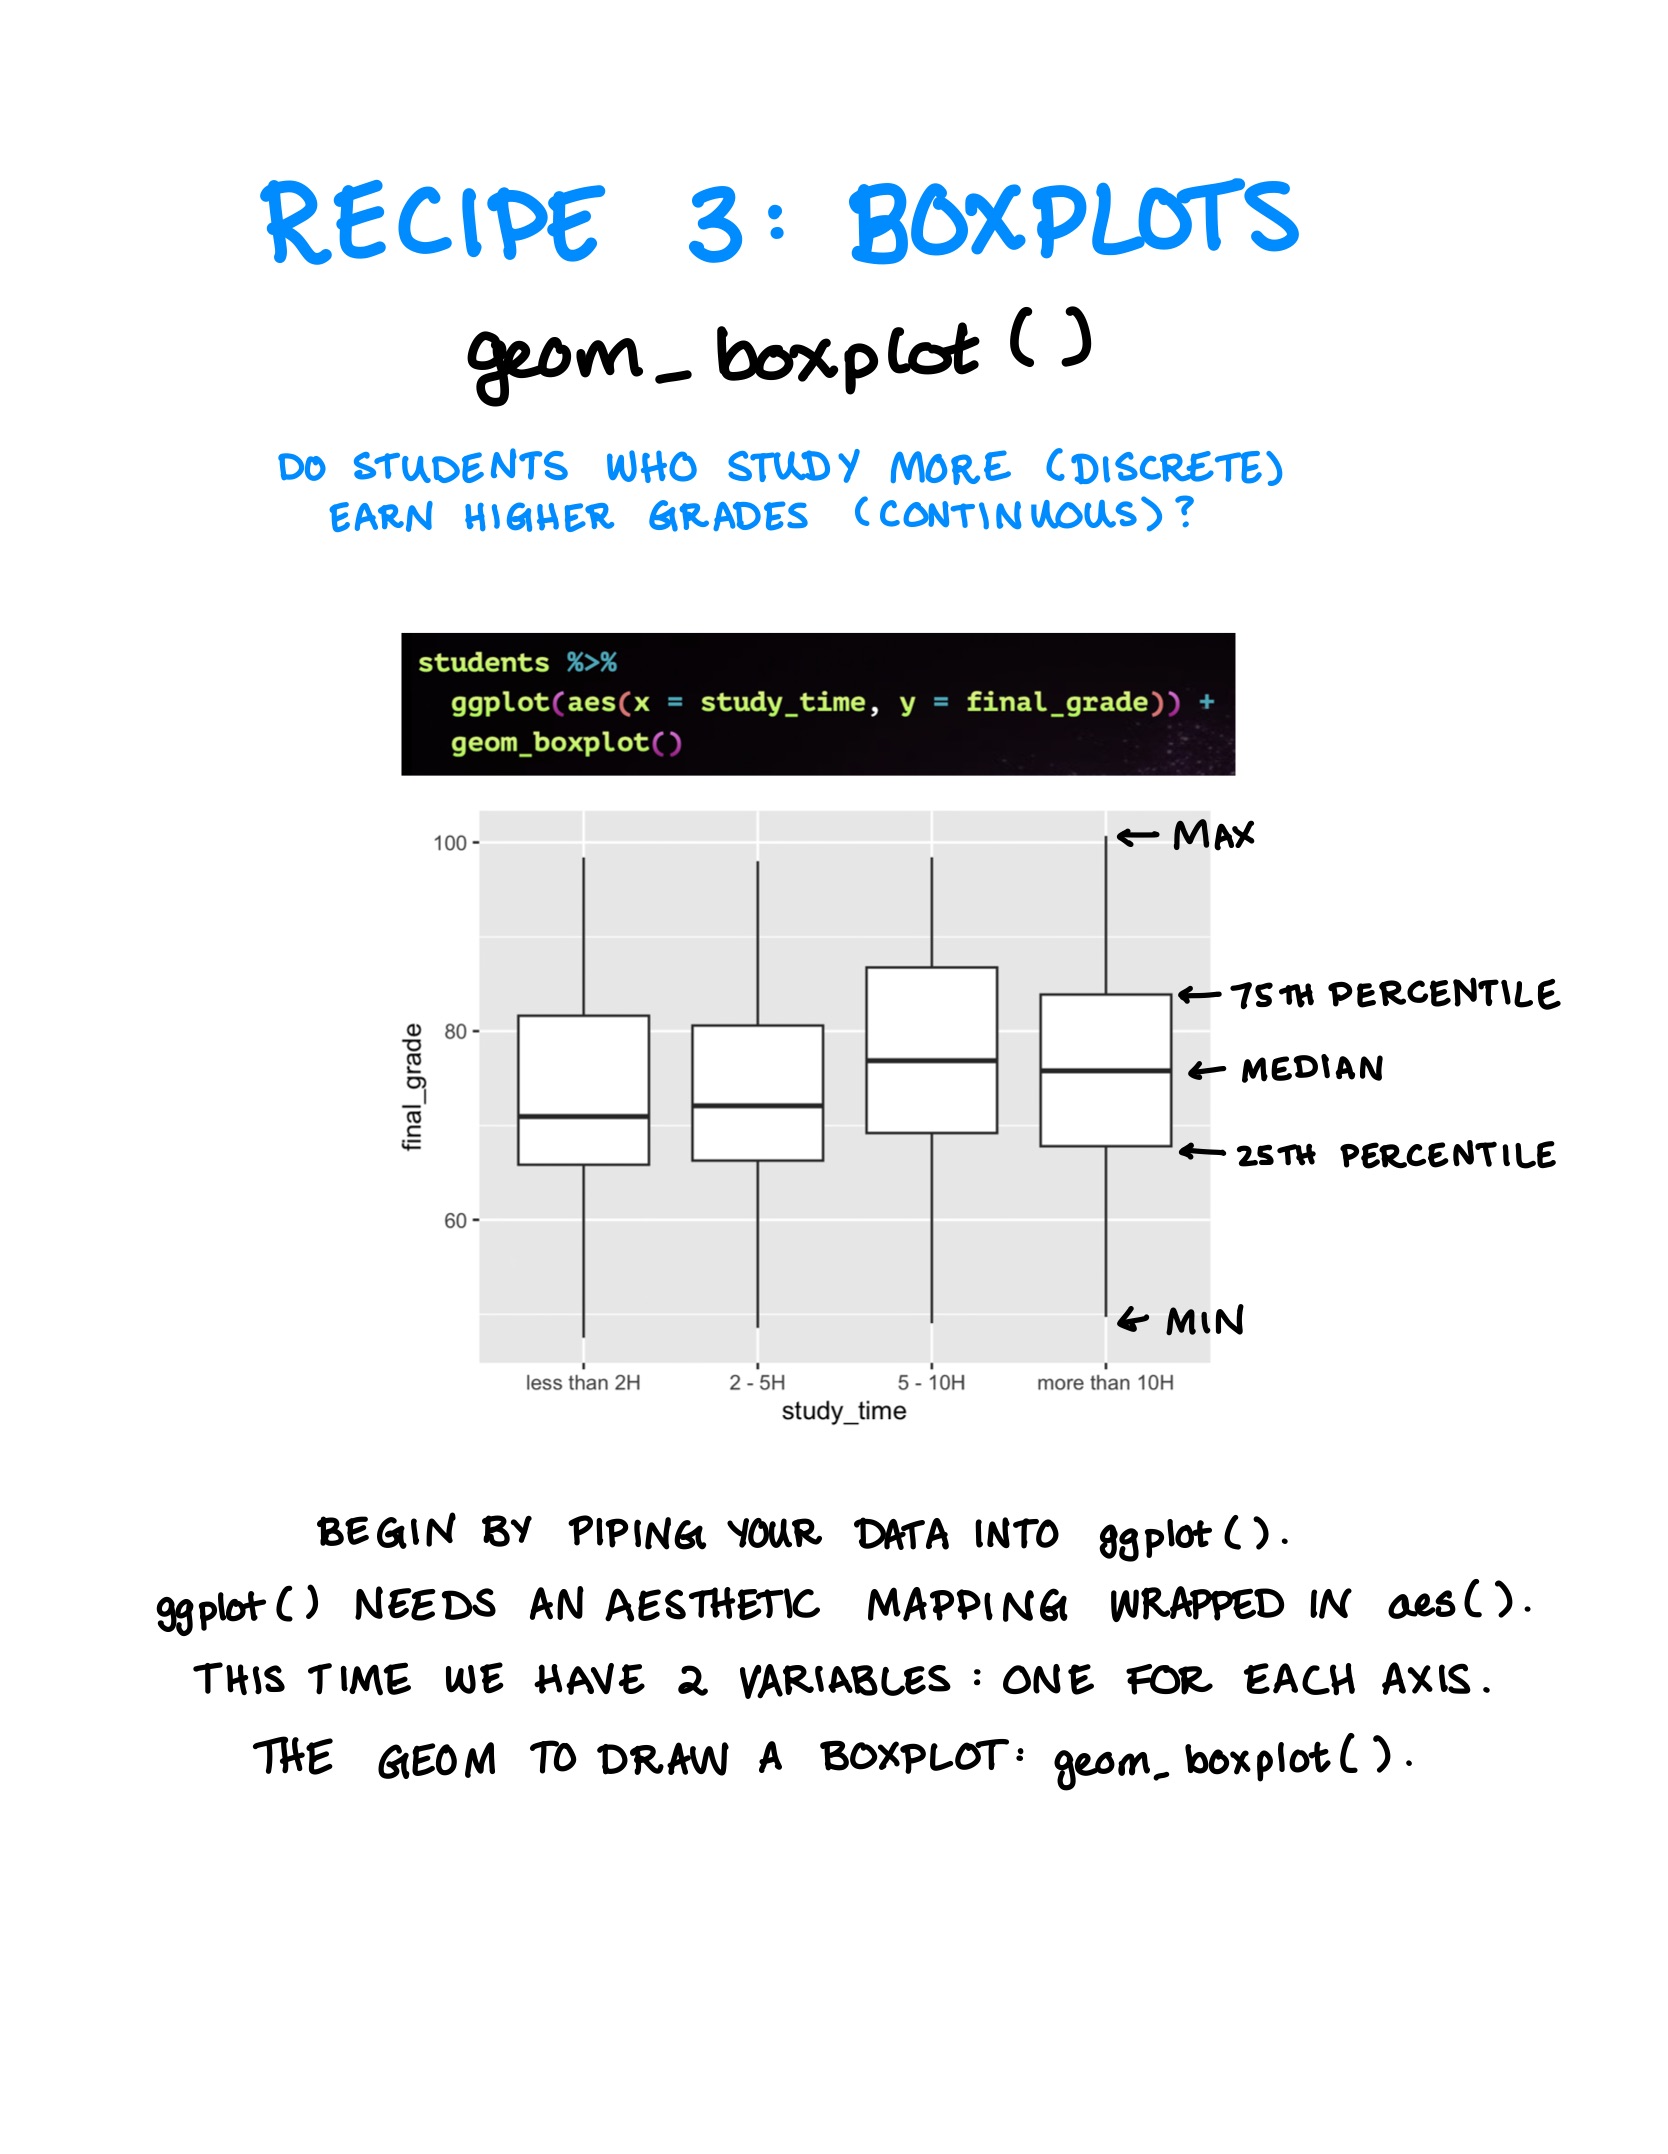 RECIPE 3: BOXPLOTS
geom_boxplot()
DO STUDENTS WHO STUDY MORE (DISCRETE)
EARN HIGHER GRADES (CONTINUOUS)?
students %>%
ggplot(aes(x = study_time, y = final_grade)) +
geom_boxplot()
100
80
60
final_grade
less than 2H
2 - 5H
5 - 10H
more than 10H
study_time
← MAX
← 75TH PERCENTILE
← MEDIAN
← 25TH PERCENTILE
← MIN
BEGIN BY PIPING YOUR DATA INTO ggplot().
ggplot() NEEDS AN AESTHETIC MAPPING WRAPPED IN aes().
THIS TIME WE HAVE 2 VARIABLES: ONE FOR EACH AXIS.
THE GEOM TO DRAW A BOXPLOT: geom_boxplot().